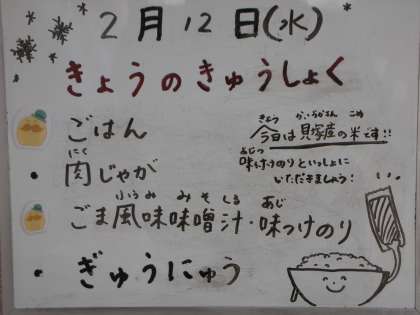 2月12日(水)
きょうのきゅうしょく
ごはん
きょう かいづかさん こめ
今日は貝塚産の米です!!
あじつ
味付けのりといっしょに
いただきましょう!
にく
肉じゃが
ふうみ みそ しる あじ
ごま風味味噌汁・味つけのり
ぎゅうにゅう